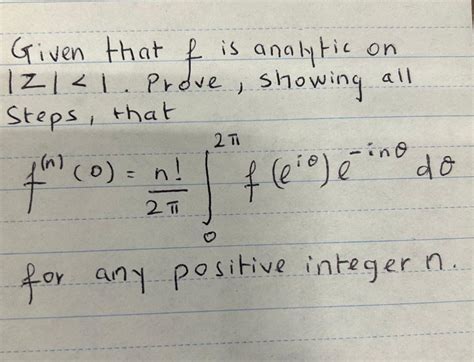 Given that f is analytic on
|Z| < 1. Prove, showing all
Steps, that
f^(n) (0) = n!/2π ∫_0^2π f(e^iθ) e^-inθ dθ
for any positive integer n.